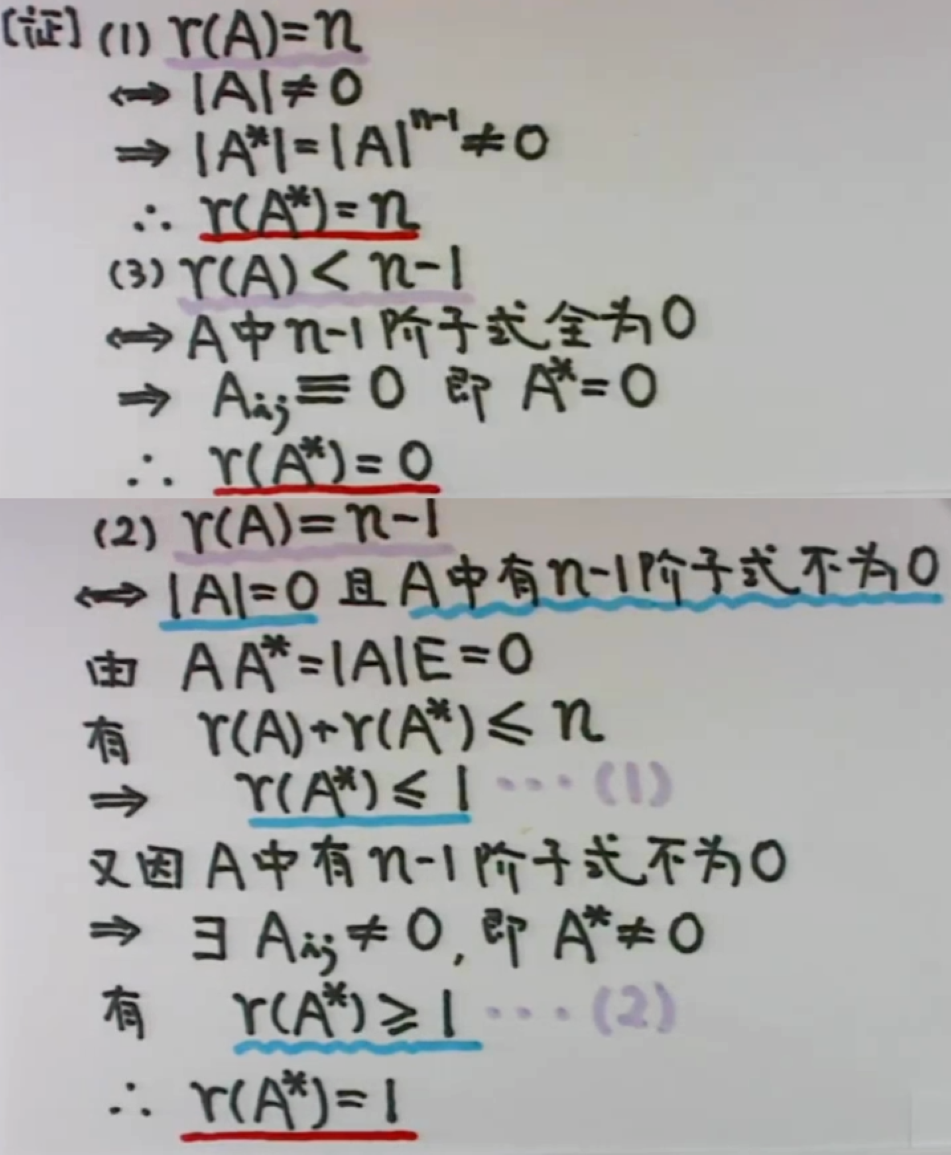 [证] (1) r(A)=n
⟺ |A|≠0
⇒ |A*|=|A|ⁿ⁻¹≠0
∴ r(A*)=n
(3) r(A)<n-1
⟺ A中n-1阶子式全为0
⇒ Aᵢⱼ≡0 即 A*=0
∴ r(A*)=0
(2) r(A)=n-1
⟺ |A|=0 且 A中有n-1阶子式不为0
由 AA*=|A|E=0
有 r(A)+r(A*)≤n
⇒ r(A*)≤1 ···(1)
又因 A中有n-1阶子式不为0
⇒ ∃ Aᵢⱼ≠0, 即 A*≠0
有 r(A*)≥1 ···(2)
∴ r(A*)=1